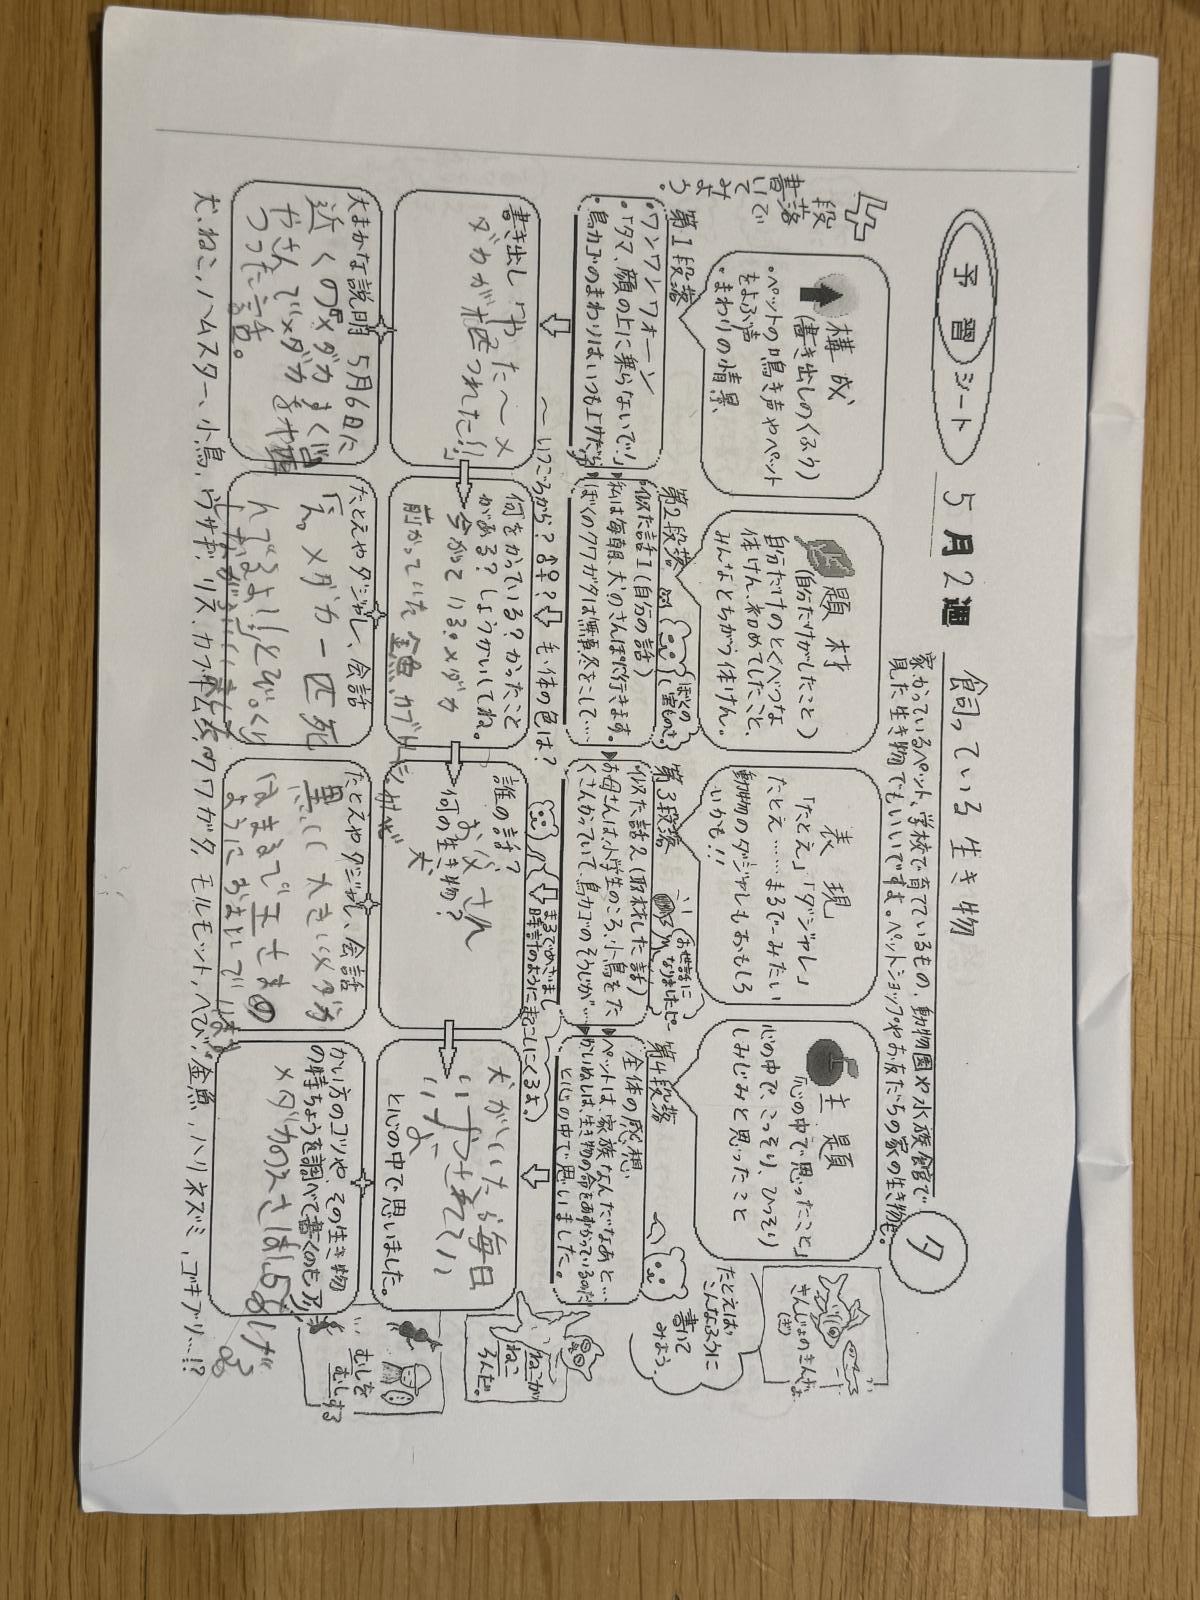 予習シート 5月2週 飼っている生き物
家でかっているペット、学校で育てているもの、動物園や水族館で
見た生き物でもいいですよ。ペットショップやお友だちの家の生き物も。
タ
構成
(書き出しのくふう)
・ペットの鳴き声やペット
をよぶ声
・まわりの情景
題材
(自分だけがしたこと)
自分だけのとくべつな
体けん、初めてしたこと、
みんなとちがう体けん。
表現
「たとえ」「ダジャレ」
たとえ……まるで〜みたい
動物のダジャレもおもしろ
いかも!!
主題
「心の中で思ったこと」
心の中で、こっそり、ひっそり
しみじみと思ったこと
4段落で書いてみよう。
第1段落
・ワンワンワオーン
・「タマ、顔の上に乗らないで!」
・鳥カゴのまわりはいつも上りだ
第2段落
似た話1(自分の話)
私は毎朝、犬のさんぽに行きます。
ぼくのクワガタは無事冬をこして……
ぼくの宝もの
第3段落
似た話2(取材した話)
お母さんは小学生のころ、小鳥をた
くさんかっていて、鳥カゴのそうじが…
お世話になりましたピー
第4段落
全体の感想
ペットは、家族なんだなあと…
かいぬしは、生き物の命をあずかっているのだ
と心の中で思いました。
たとえばこんなふうに
書いてみよう。
きんじょのきんぎょ
〜いつころから? ♂♀? 毛・体の色は?
まるでめざまし
時計のように起こしにくるよ。
書き出し「やった〜メ
ダカが
つれた!!」
何をかっている?かったこと
がある?しょうかいしてね。
今かっている。メダカ
前かっていた 金魚、カブト
誰の話?
お父さん
何の生き物?
犬
犬がいたら毎日
いやされてい
いなぁ
と心の中で思いました。
ねこが
ねころんだ。
大まかな説明 5月6日に
近くのメダカ
やさんでメダカ
つった話。
たとえやダジャレ、会話
メダカ一匹死
んでるよ!」とびっくり
たとえやダジャレ、会話
黒くて大きいメダカ
はまるで王さまの
ようにおよいで
かい方のコツや、その生き物
の特ちょうを調べて書くのもアリ
むしを
むしする
犬、ねこ、ハムスター、小鳥、ウサギ、リス、カブト虫、クワガタ、モルモット、ヘビ、金魚、ハリネズミ、ゴキブリ…!?